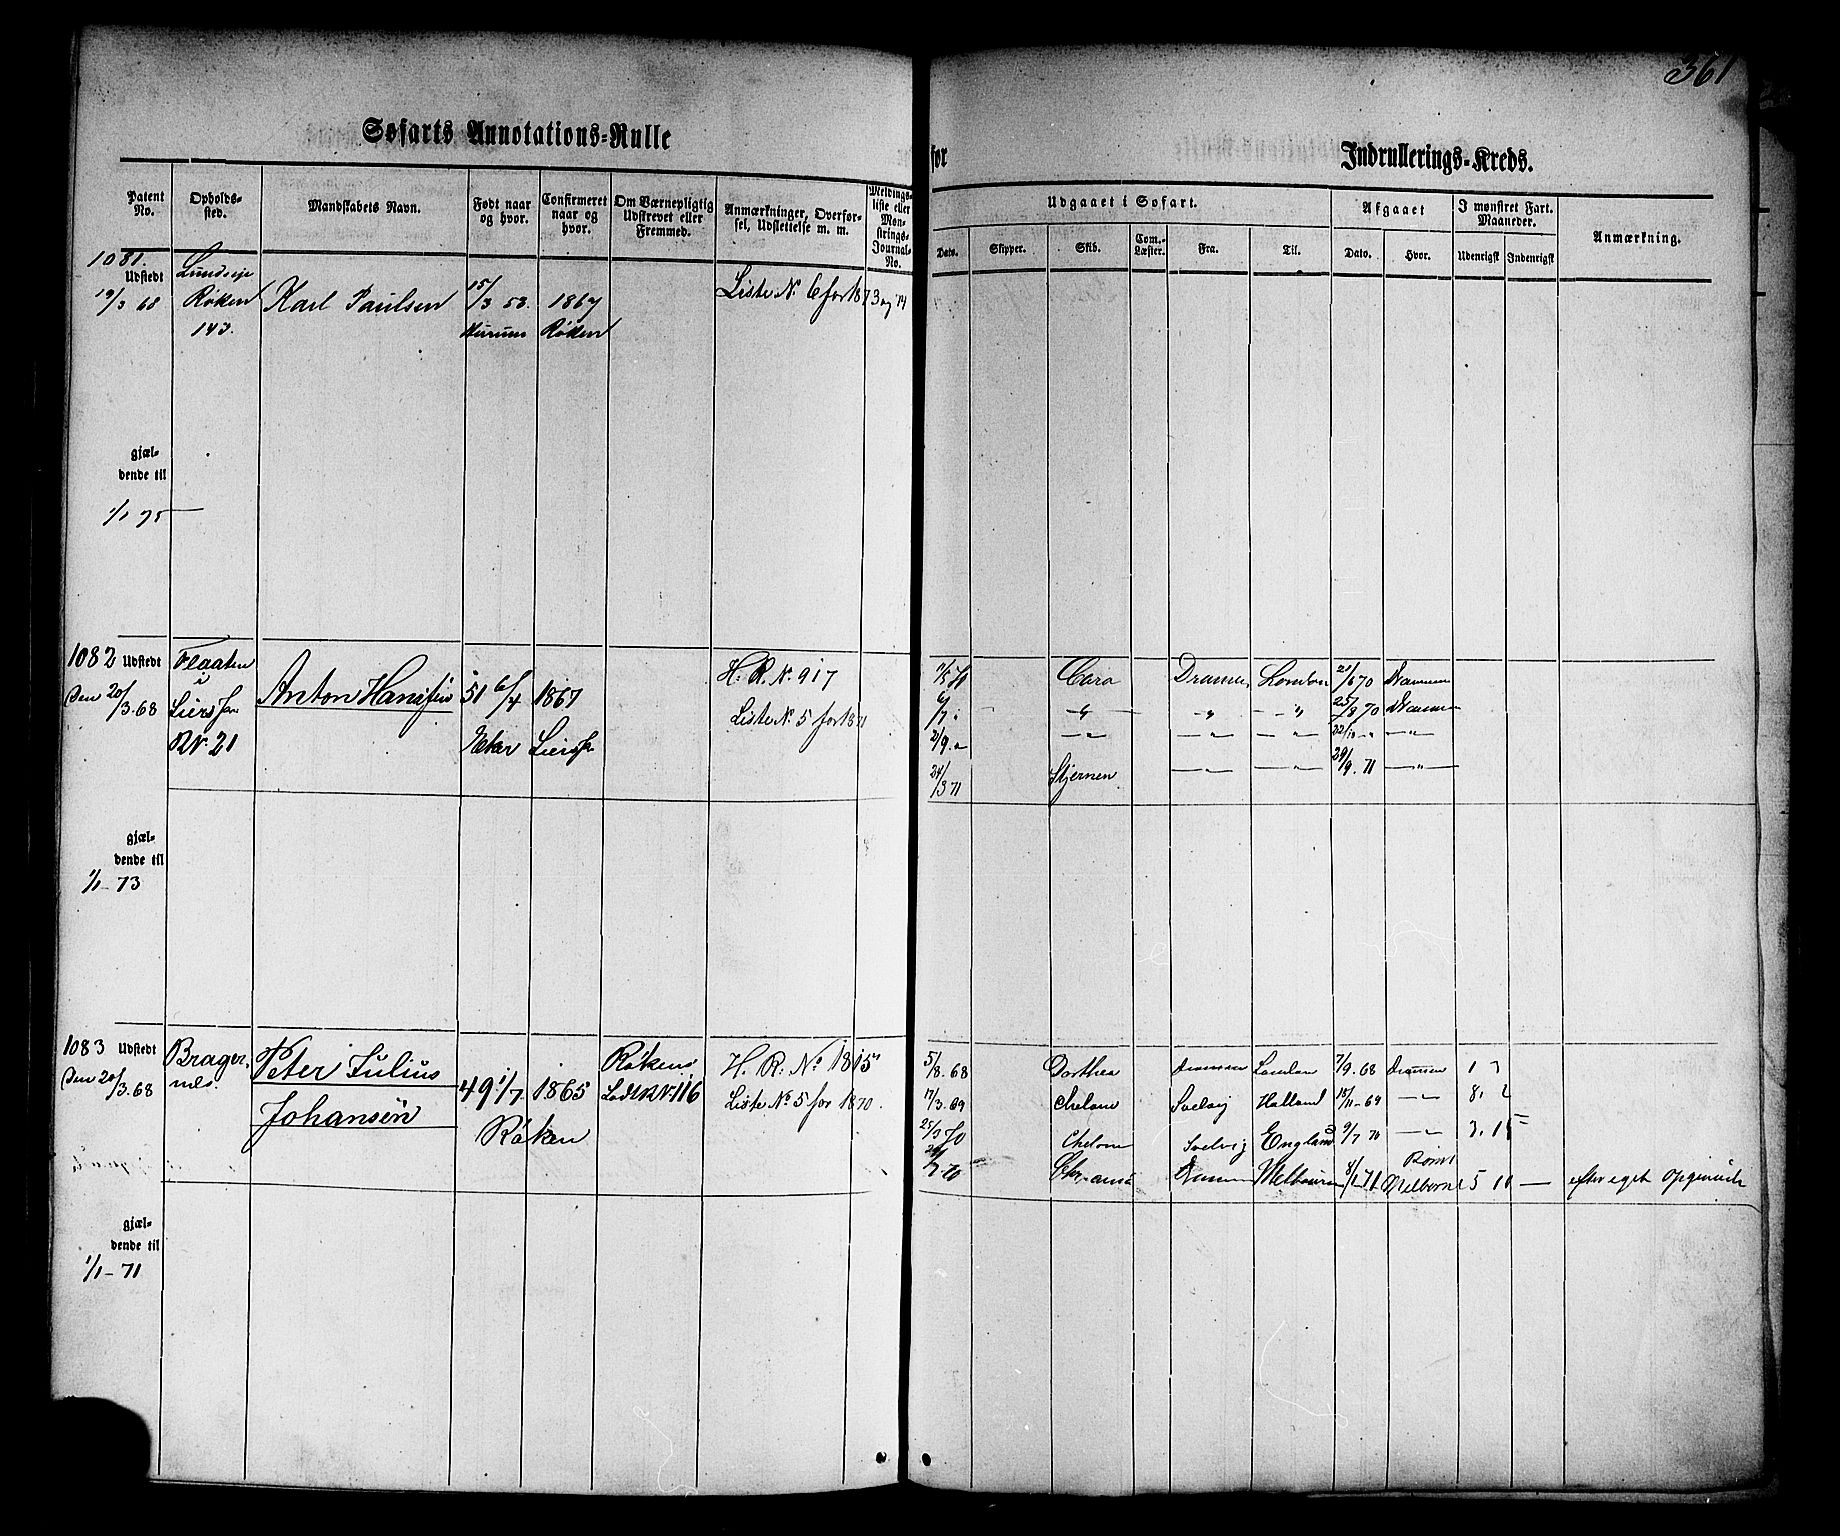 361
Søfarts Annotations-Rulle
for Indrullerings-Kreds.
Patent No.
Opholdssted.
Mandskabets Navn.
Født naar og hvor.
Confirmeret naar og hvor.
Om Værnepligtig Udskrevet eller Fremmed.
Anmærkninger, Overførsel, Udslettelse m. m.
Meldingsliste eller Mønstrings-Journal-No.
Udgaaet i Søfart.
Afgaaet
I mønstret Fart. Maaneder.
Anmærkning.
Dato. Skipper. Skib. Com.-Læster. Fra. Til. Dato. Hvor. Udenrigsk Indenrigsk
1081.
Udstedt
19/3 68
Røken
143.
Karl Paulsen
15/3 53.
Hurum
1867
Røken
Liste N. 6 for 1873 og 74
gjæl-
dende til
1/1 75
1082 Udstedt
Den 20/3.68
Flaaten
i
Lier
RN. 21
Anton Hansen
51 6/4
Eker
1867
Lier
H. R. N. 917
Liste N. 5 for 1871
Cara Drammen London 21/6 70 Drammen
6/7 " — " — " — " 25/8 70 Drammen
2/9. " — " — " — " — " —
24/3 71 Stjernen — " — " 29/9. 71 — " —
gjæl-
dende til
1/1 - 73
1083 Udstedt
Den 20/3.68
Brager-
nes.
Peter Julius
Johansen
49 1/7
1865
Røken
Røkens
H. R. No 1815
Liste No. 5 for 1870.
5/8. 68 Dorthea Drammen London 7/9. 68 Drammen 1 7
17/3. 69 Svelvig Holland 69 — " — 8. 2
25/3 70 Svelvig England 9/7 70 — " — 3. 15
70 Drammen Melbourn 8/1 71 Rømt Melborne 5 11 — efter eget Opgivende
gjæl-
dende til
1/1 - 71